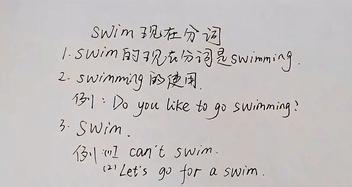 swim 现在分词
1. swim的现在分词是swimming.
2. swimming的使用.
例: Do you like to go swimming?
3. swim.
例:(1)I can't swim.
(2)Let's go for a swim.